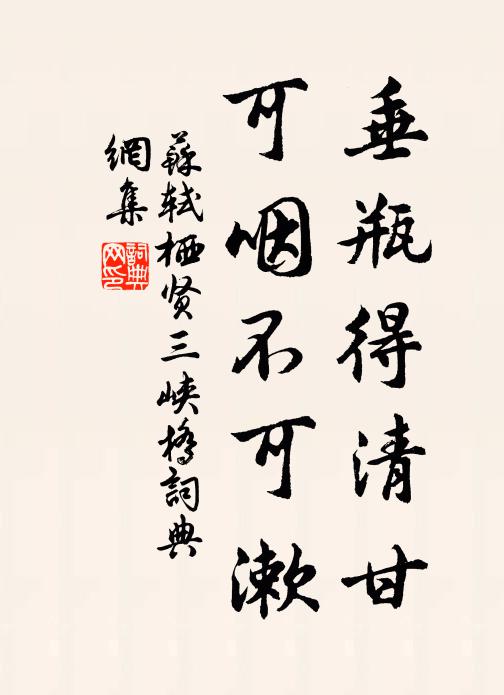 垂瓶得清甘
可咽不可漱
蘇軾栖贤三峡橋詞典
網集
詞典网印